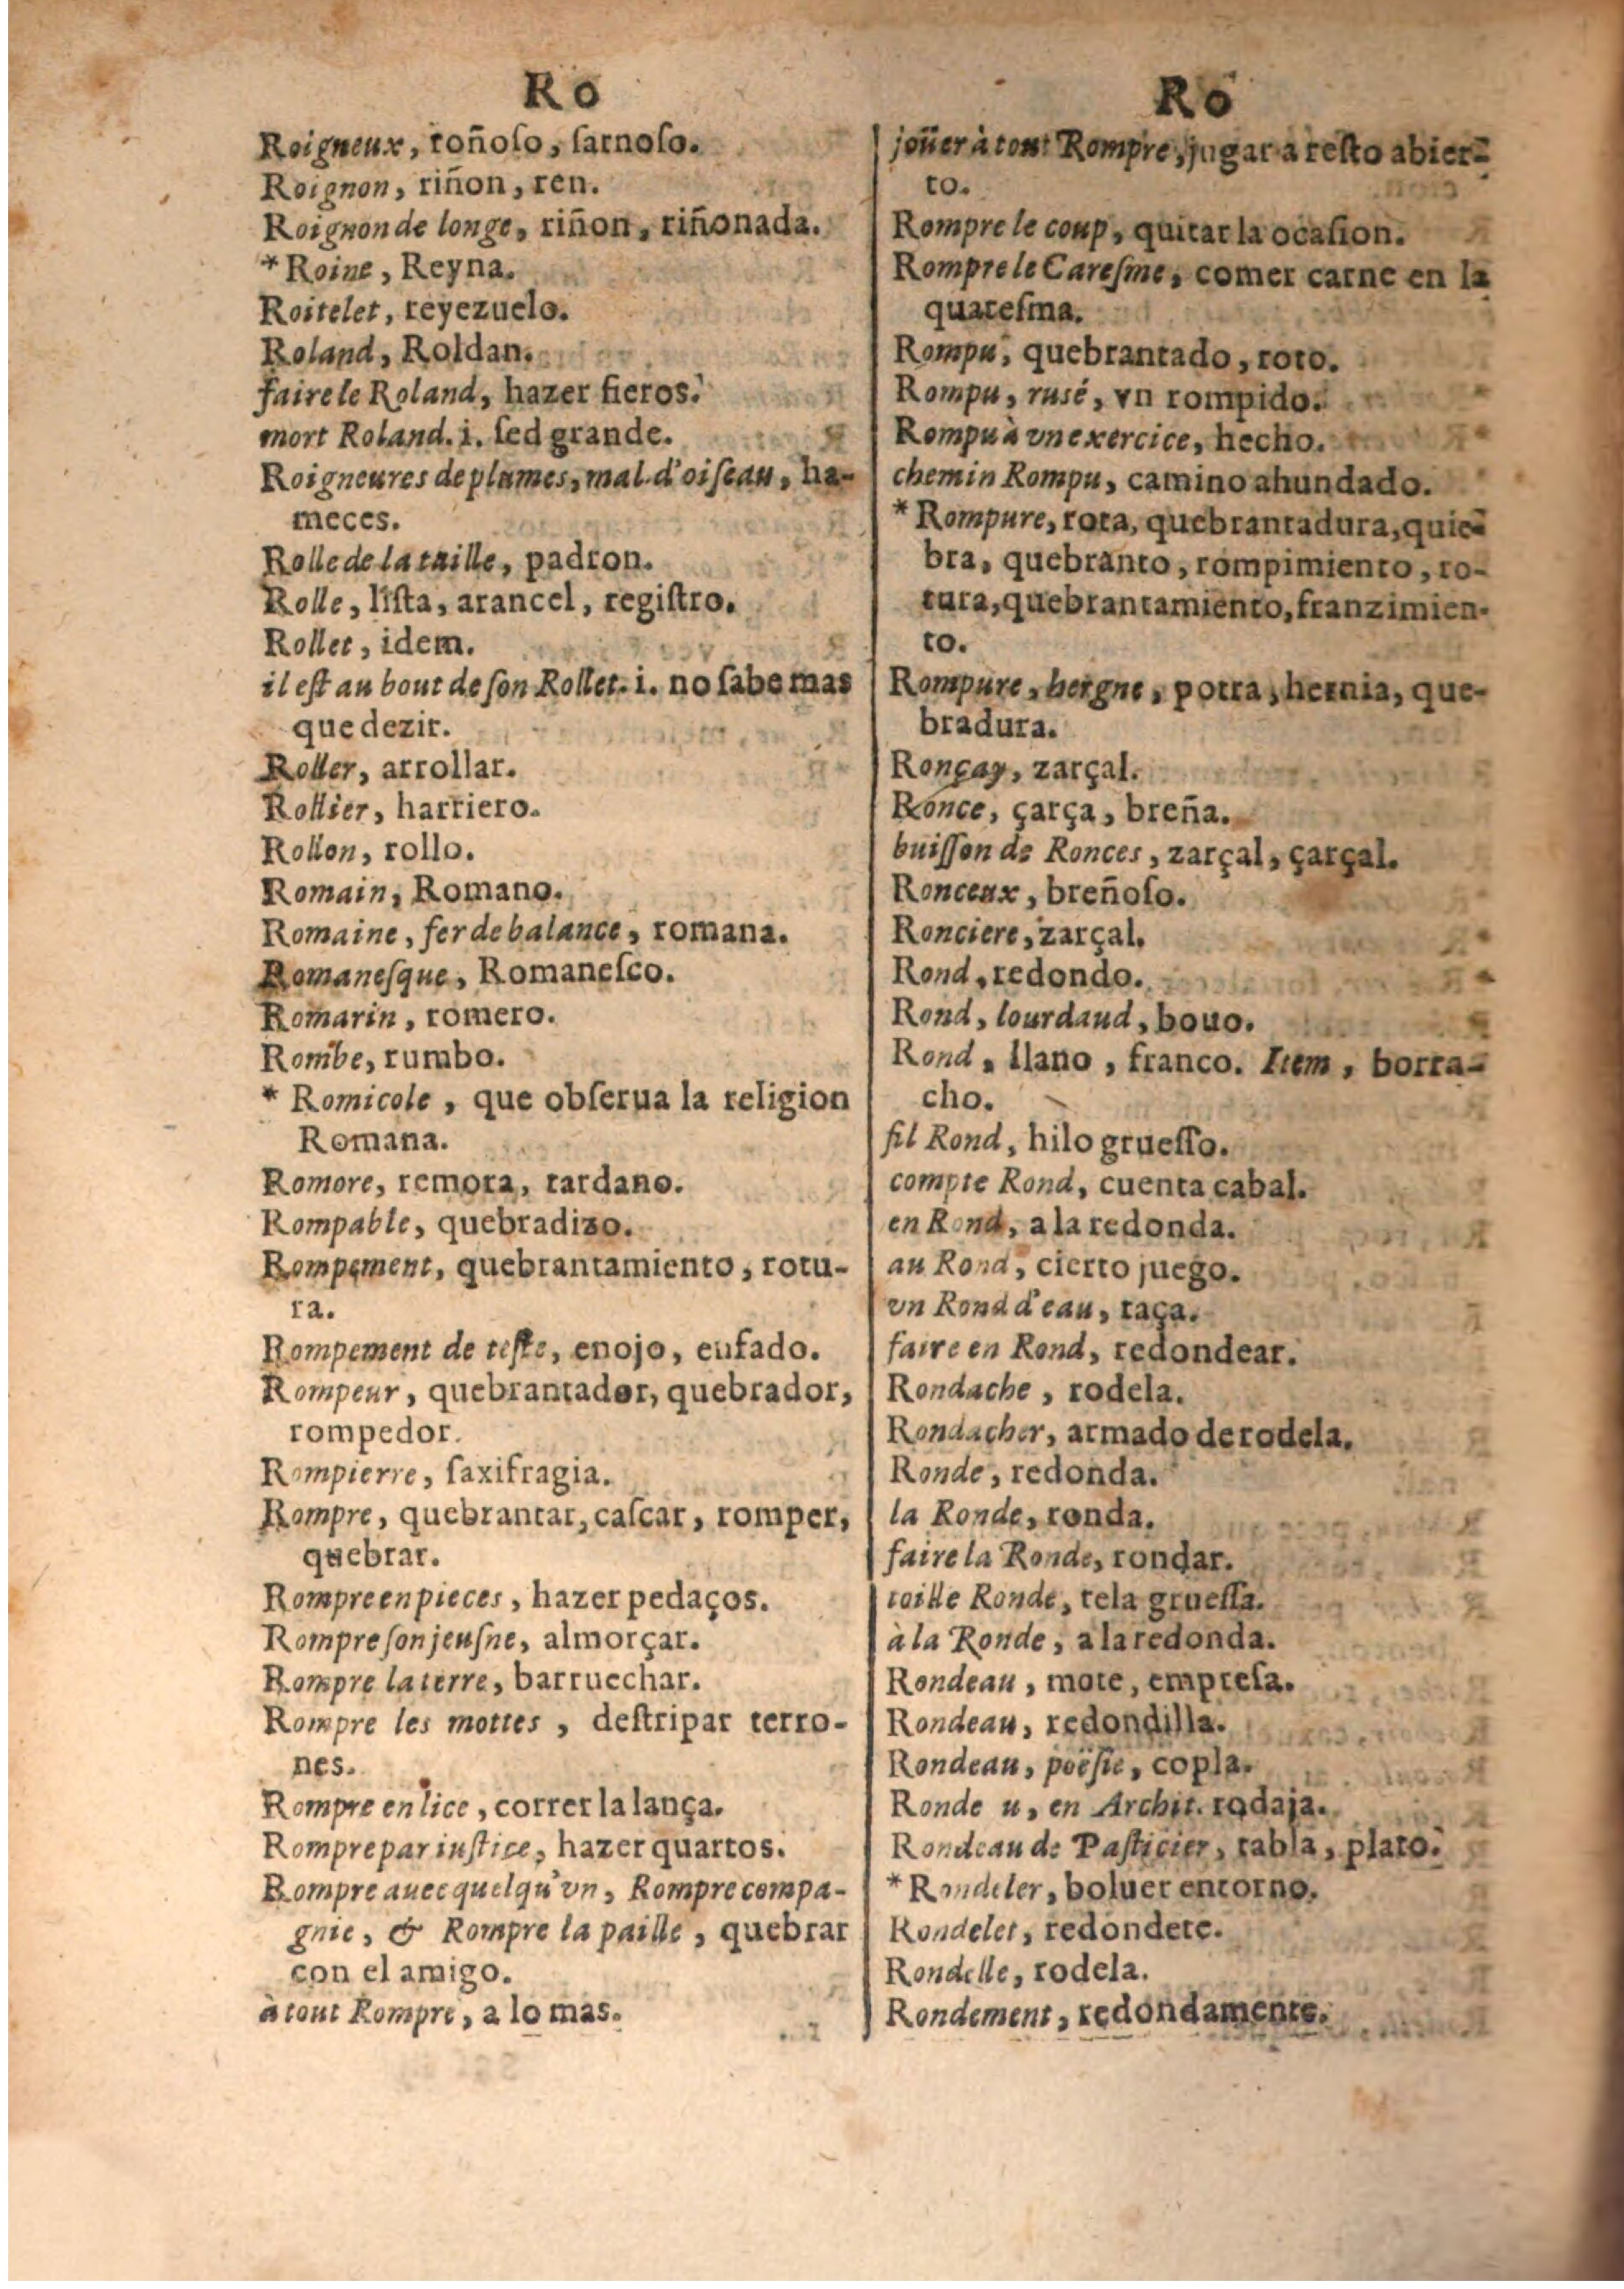 Ro
Roigneux, roñoſo, ſarnoſo.
Roignon, riñon, ren.
Roignon de longe, riñon, riñonada.
* Roine, Reyna.
Roitelet, reyezuelo.
Roland, Roldan.
faire le Roland, hazer fieros.
mort Roland. i. ſed grande.
Roigneures de plumes, mal d'oiſeau, ha-
meces.
Rolle de la taille, padron.
Rolle, liſta, arancel, regiſtro.
Rollet, idem.
il eſt au bout de ſon Rollet. i. no ſabe mas
que dezir.
Roller, arrollar.
Rollier, harriero.
Rollon, rollo.
Romain, Romano.
Romaine, fer de balance, romana.
Romaneſque, Romaneſco.
Romarin, romero.
Rombe, rumbo.
* Romicole, que obſerua la religion
Romana.
Romore, remora, tardano.
Rompable, quebradizo.
Rompement, quebrantamiento, rotu-
ra.
Rompement de teſte, enojo, enfado.
Rompeur, quebrantador, quebrador,
rompedor.
Rompierre, ſaxifragia.
Rompre, quebrantar, caſcar, romper,
quebrar.
Rompre en pieces, hazer pedaços.
Rompre ſon jeuſne, almorçar.
Rompre la terre, barruechar.
Rompre les mottes, deſtripar terro-
nes.
Rompre en lice, correr la lança.
Rompre par iuſtice, hazer quartos.
Rompre auec quelqu'vn, Rompre compa-
gnie, & Rompre la paille, quebrar
con el amigo.
à tout Rompre, a lo mas.
Ro
joüer à tout Rompre, jugar a reſto abier-
to.
Rompre le coup, quitar la ocaſion.
Rompre le Careſme, comer carne en la
quareſma.
Rompu, quebrantado, roto.
Rompu, ruſé, vn rompido.
Rompu à vn exercice, hecho.
chemin Rompu, camino ahundado.
* Rompure, rota, quebrantadura, quie-
bra, quebranto, rompimiento, ro-
tura, quebrantamiento, franzimien-
to.
Rompure, hergne, potra, hernia, que-
bradura.
Ronçay, zarçal.
Ronce, çarça, breña.
buiſſon de Ronces, zarçal, çarçal.
Ronceux, breñoſo.
Ronciere, zarçal.
Rond, redondo.
Rond, lourdaud, bouo.
Rond, llano, franco. Item, borra-
cho.
fil Rond, hilo grueſſo.
compte Rond, cuenta cabal.
en Rond, a la redonda.
au Rond, cierto juego.
vn Rond d'eau, taça.
faire en Rond, redondear.
Rondache, rodela.
Rondacher, armado de rodela.
Ronde, redonda.
la Ronde, ronda.
faire la Ronde, rondar.
toille Ronde, tela grueſſa.
à la Ronde, a la redonda.
Rondeau, mote, empreſa.
Rondeau, redondilla.
Rondeau, poëſie, copla.
Ronde u, en Archit. rodaja.
Rondeau de Paſticier, tabla, plato.
* Rondeler, boluer entorno.
Rondelet, redondete.
Rondelle, rodela.
Rondement, redondamente.